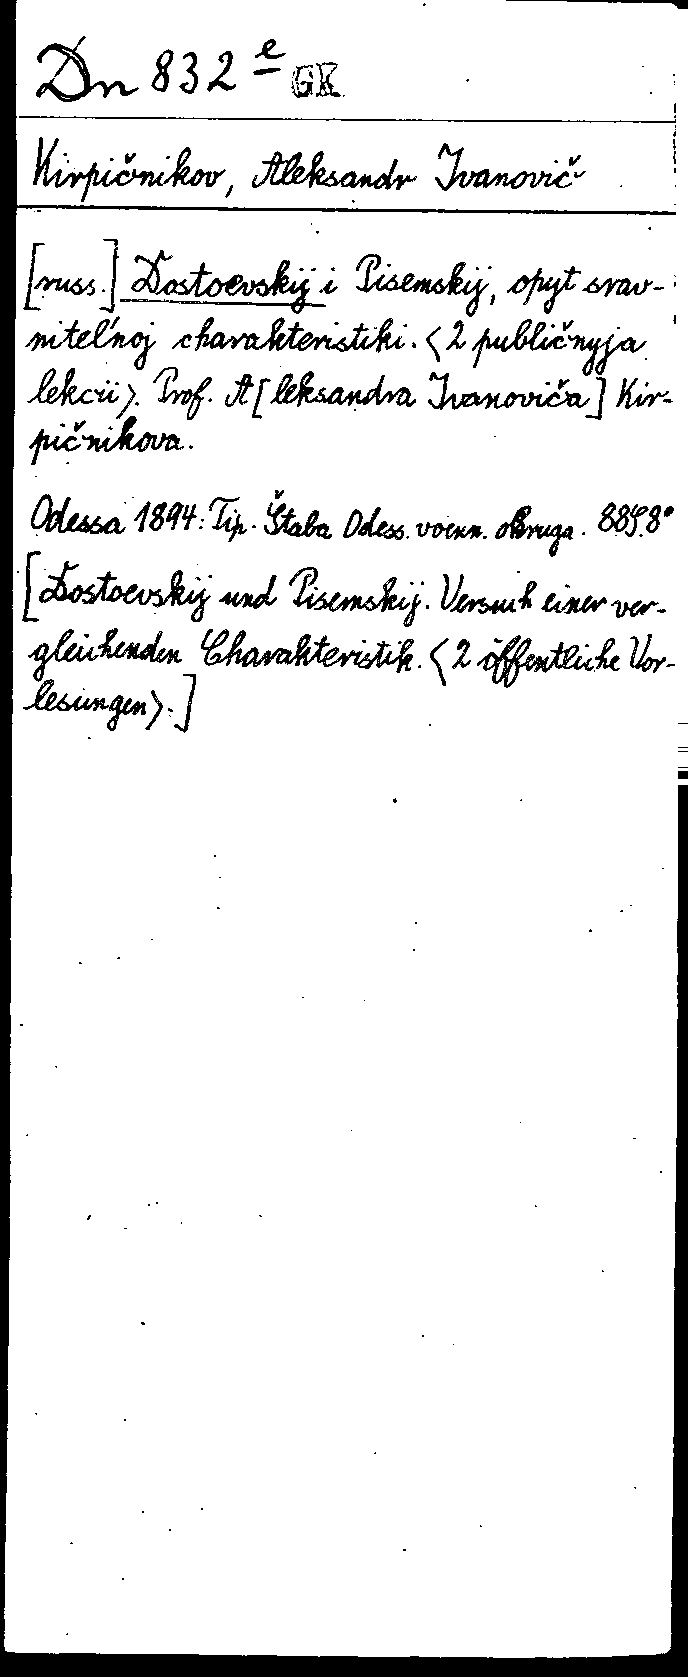 Dn 832 e GK
Kirpičnikov, Aleksandr Ivanovič
[russ.] Dostoevskij i Pisemskij, opyt srav-
nitel'noj charakteristiki. <2 publičnyja
lekcii>. Prof. A[leksandra Ivanoviča] Kir-
pičnikova.
Odessa 1894: Tip. Štaba Odess. voenn. okruga. 88S. 8°
[Dostoevskij und Pisemskij. Versuch einer ver-
gleichenden Charakteristik. <2 öffentliche Vor-
lesungen>.]